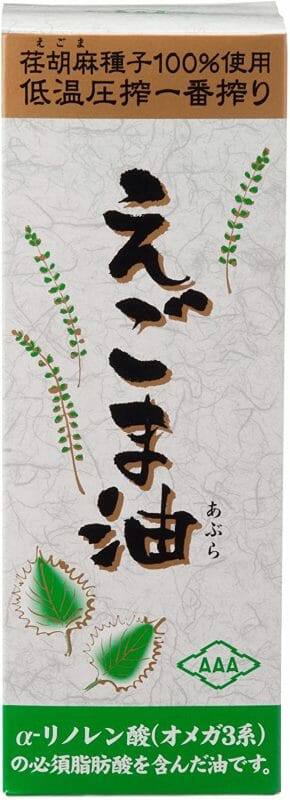 えごま
荏胡麻種子100%使用
低温圧搾一番搾り
えごま油
あぶら
AAA
α-リノレン酸(オメガ3系)
の必須脂肪酸を含んだ油です。